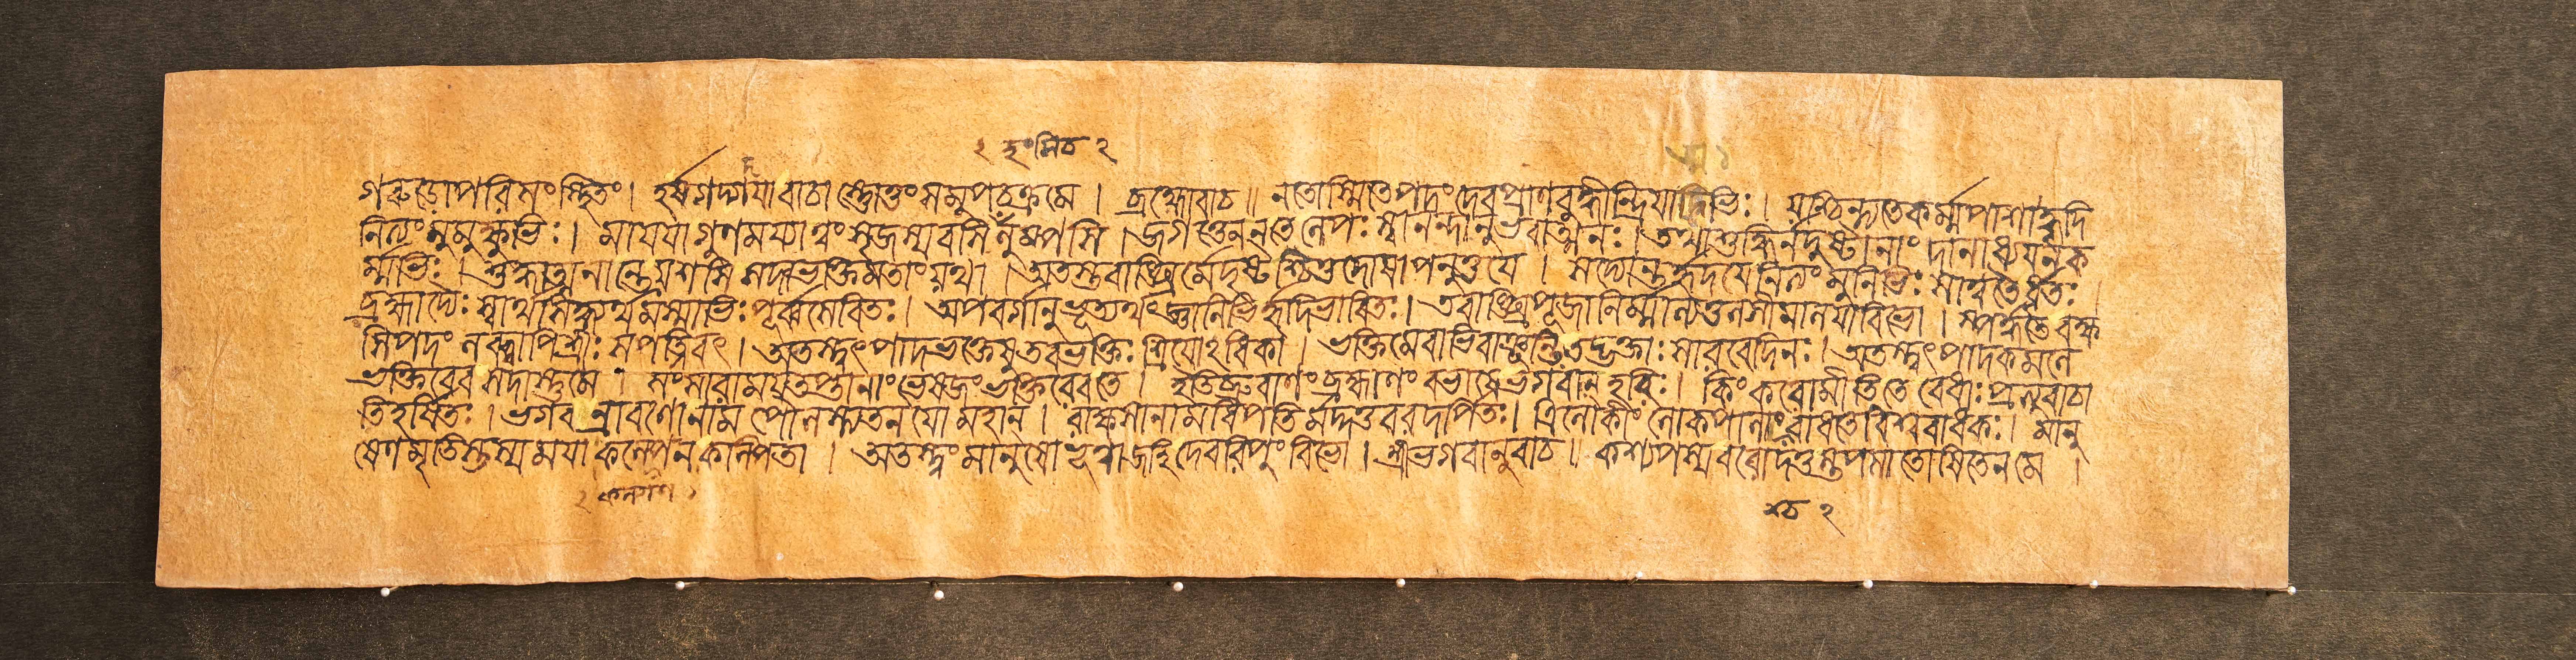 গরুডোপরিসংস্থিতং। হর্ষগদ্গদয়াবাচাস্তোতুংসমুপচক্রমে । ব্রহ্মোবাচ॥ নতোস্মিতেপদংদেবপ্রাণবুদ্ধীন্দ্রিয়াদিভিঃ। যচ্চিন্ত্যতেকর্ম্মপাশাদ্ধৃদি
নিত্যংমুমুক্ষুভিঃ। মায়য়াগুণময়্যাত্বংসৃজস্যবসিলুম্পসি ।জগত্তেননতেলেপঃস্বানন্দানুভবাত্মনঃ।তথাশুদ্ধির্নদুষ্টানাংদানাধ্যয়নক
র্ম্মভিঃ। শুদ্ধাত্মনান্তেযশসিসদাভক্তিমতাংযথা ।অতস্তবাঙ্ঘ্রির্মেদৃষ্টশ্চিত্তদোষাপনুত্তয়ে । সদ্যোন্তর্হৃদয়েনিত্যংমুনিভিঃসাত্বতৈর্ধৃতঃ
ব্রহ্মাদ্যৈঃস্বার্থসিদ্ধ্যর্থমস্মাভিঃপূর্ব্বসেবিতঃ। অপবর্গানুভূত্যর্থংজ্ঞানিভির্হৃদিভাবিতঃ।তবাঙ্ঘ্রিপূজানির্ম্মাল্যতুলসীমালয়াবিভো । স্পর্দ্ধতেবক্ষ
সিপদংলব্ধ্বাপিশ্রীঃসপত্নিবৎ।অতস্ত্বৎপাদভক্তেষুতবভক্তিঃশ্রিয়োঽধিকা । ভক্তিমেবাভিবাঞ্ছন্তিত্বদ্ভক্তাঃসারবেদিনঃ।অতস্ত্বৎপাদকমলে
ভক্তিরেবসদাস্তুমে । সংসারাময়তপ্তানাংভেষজংভক্তিরেবতে । ইতিব্রুবাণংব্রহ্মাণংবভাষেভগবান্ হরিঃ। কিংকরোমীতিতেবেধাঃপ্রত্যুবাচা
তিহর্ষিতঃ।ভগবন্রাবণোনামপৌলস্ত্যতনয়োমহান্ । রাক্ষসানামধিপতির্মদ্দত্তবরদর্পিতঃ। ত্রিলোকীংলোকপালাংবাধতেবিশ্ববাধকঃ। মানু
ষেণমৃতিস্তস্যময়াকল্পেনকল্পিতা । অতস্ত্বংমানুষোভূত্বাজহিদেবরিপুংবিভো ।শ্রীভগবানুবাচ॥ কশ্যপস্যবরোদত্তস্তপসাতোষিতেনমে ।